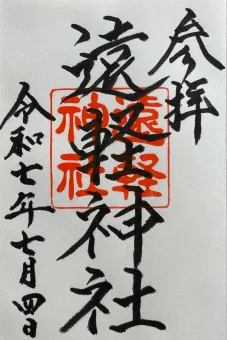 参拝
遠軽神社
令和七年七月四日
遠軽
神社